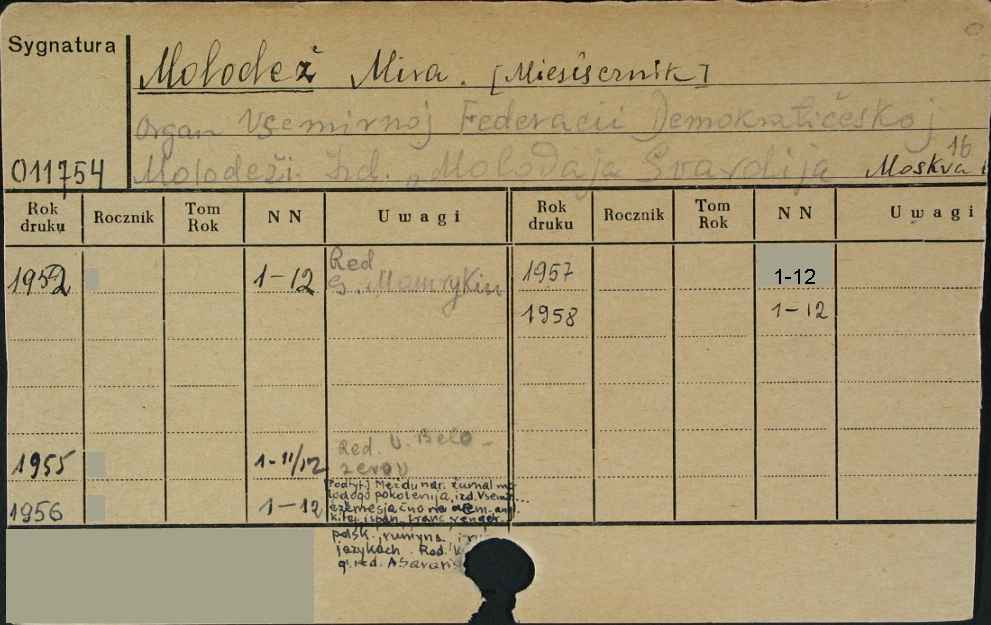 Sygnatura
Molodež Mira. [Miesięcznik]
Organ Vsemirnoj Federacii Demokratičeskoj
16
011754 Molodeži. Izd. „Molodaja Gvardija Moskva
Rok druku Rocznik Tom Rok NN Uwagi Rok druku Rocznik Tom Rok NN Uwagi
Red
1952 1-12 G. Mamrykin 1957 1-12
1958 1-12
Red. V. Belo-
1955 1-11/12 zerov
[Podtyt.] Meždunar. žurnal mo
lodogo pokolenija, izd. Vsemir
1956 1-12 ežemesjačno na
kitaj. ispan. franc. venger.
polsk. rumyns. i
jazykach. Red.
gl. red. A.